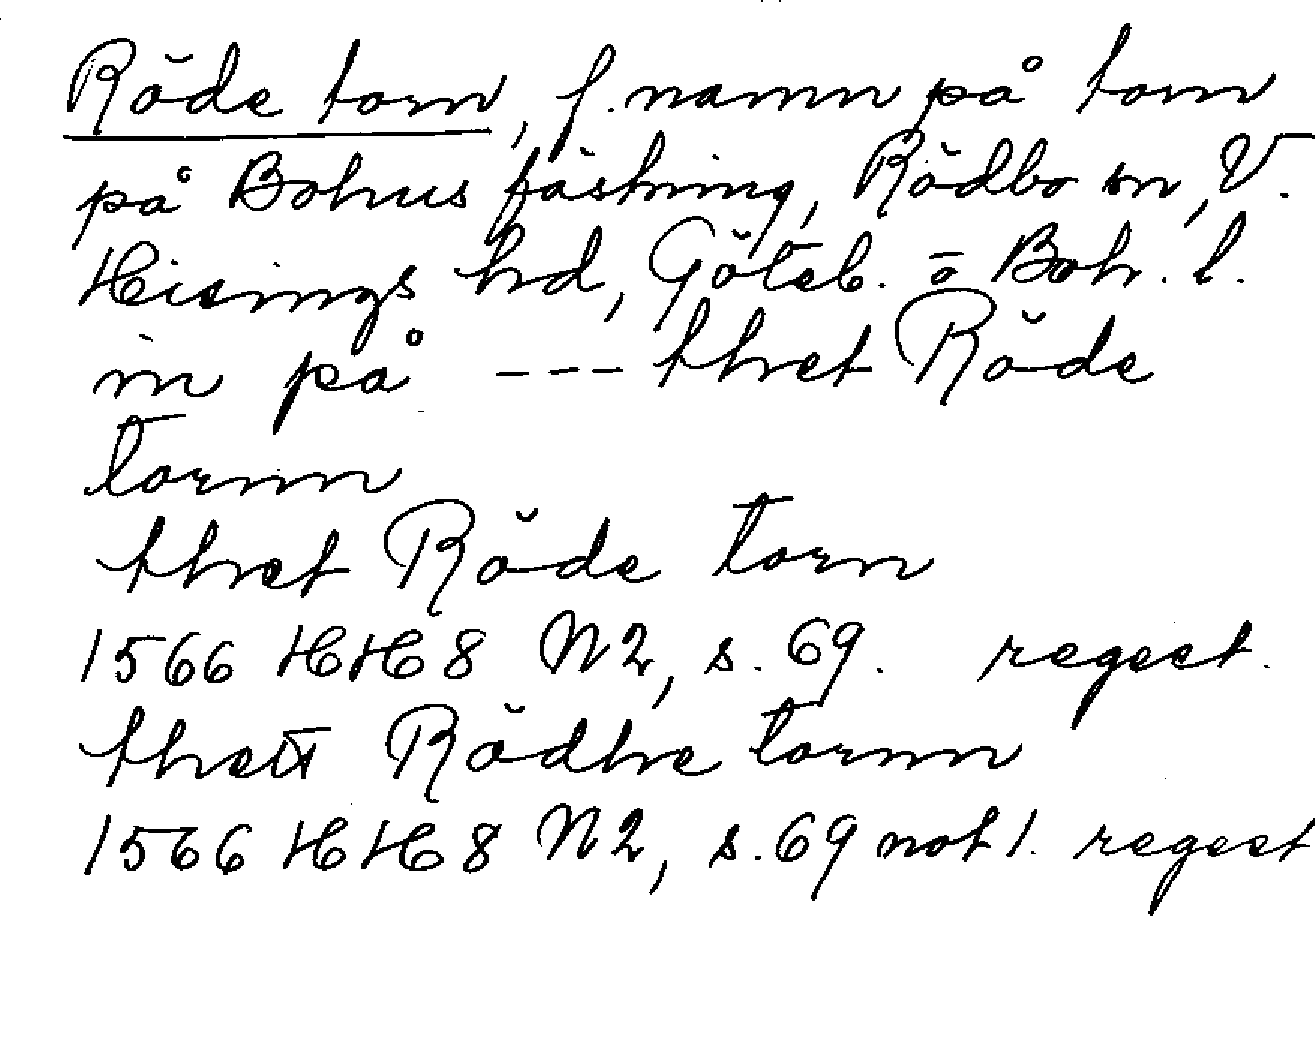 Röde torn, f. namn på torn
på Bohus fästning, Rödbo sn, V.
Hisings hd, Göteb. o Boh. l.
in på --- thet Röde
tornn
thet Röde torn
1566 HH 8 N2, s. 69. regest.
thett Rödhe tornn
1566 HH 8 N2, s. 69 not 1. regest